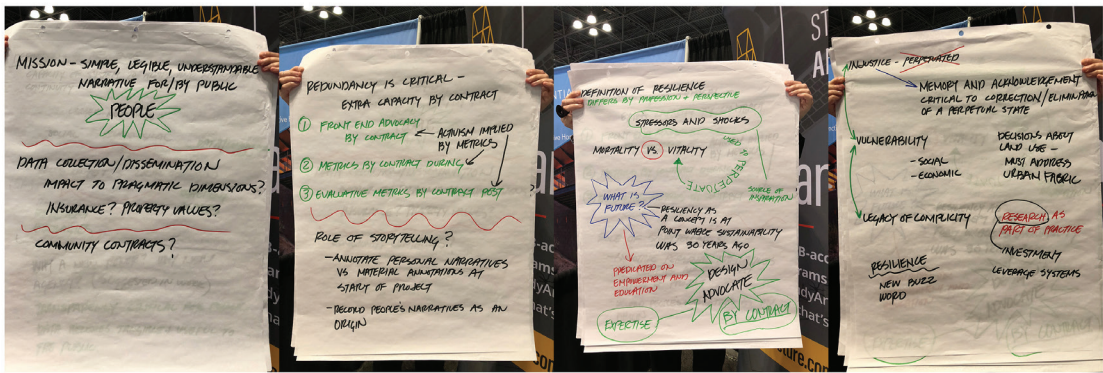 MISSION - SIMPLE, LEGIBLE, UNDERSTANDABLE
NARRATIVE FOR/BY PUBLIC
PEOPLE
DATA COLLECTION/DISSEMINATION
IMPACT TO PRAGMATIC DIMENSIONS?
INSURANCE? PROPERTY VALUES?
COMMUNITY CONTRACTS?
REDUNDANCY IS CRITICAL -
EXTRA CAPACITY BY CONTRACT
① FRONT END ADVOCACY
BY CONTRACT
ACTIVISM IMPLIED
BY METRICS
② METRICS BY CONTRACT DURING
③ EVALUATIVE METRICS BY CONTRACT POST
ROLE OF STORYTELLING?
- ANNOTATE PERSONAL NARRATIVES
VS MATERIAL ANNOTATIONS AT
START OF PROJECT
- RECORD PEOPLE'S NARRATIVES AS AN
ORIGIN
DEFINITION OF RESILIENCE
DIFFERS BY PROFESSION + PERSPECTIVE
STRESSORS AND SHOCKS
MORTALITY VS. VITALITY
USED TO PERPETUATE
SOURCE OF
INSPIRATION
WHAT IS
FUTURE?
- RESILIENCY AS
A CONCEPT IS AT
POINT WHERE SUSTAINABILITY
WAS 30 YEARS AGO
PREDICATED ON
EMPOWERMENT AND
EDUCATION
DESIGN
ADVOCATE
EXPERTISE
BY CONTRACT
INJUSTICE - PERPETUATED
MEMORY AND ACKNOWLEDGEMENT
CRITICAL TO CORRECTION/ELIMINATION
OF A PERPETUAL STATE
VULNERABILITY
- SOCIAL
- ECONOMIC
DECISIONS ABOUT
LAND USE -
MUST ADDRESS
URBAN FABRIC
LEGACY OF COMPLICITY
RESEARCH AS
PART OF PRACTICE
INVESTMENT
LEVERAGE SYSTEMS
RESILIENCE
NEW BUZZ
WORD
BY CONTRACT